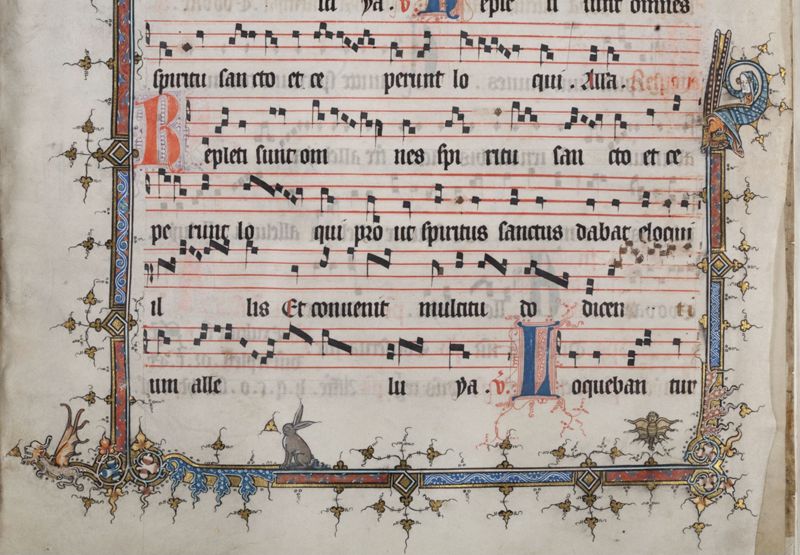 lu ya . v Reple ti sunt omnes
spiritu sancto et ce perunt lo qui . Alla . Respons
Repleti sunt om nes spi ritu san cto et ce
pe runt lo qui pro ut spiritus sanctus dabat eloqui
il lis Et convenit multitu do dicen
um alle lu ya . v Loqueban tur